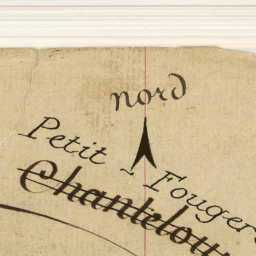 nord
Petit - Fouger
Chantelou